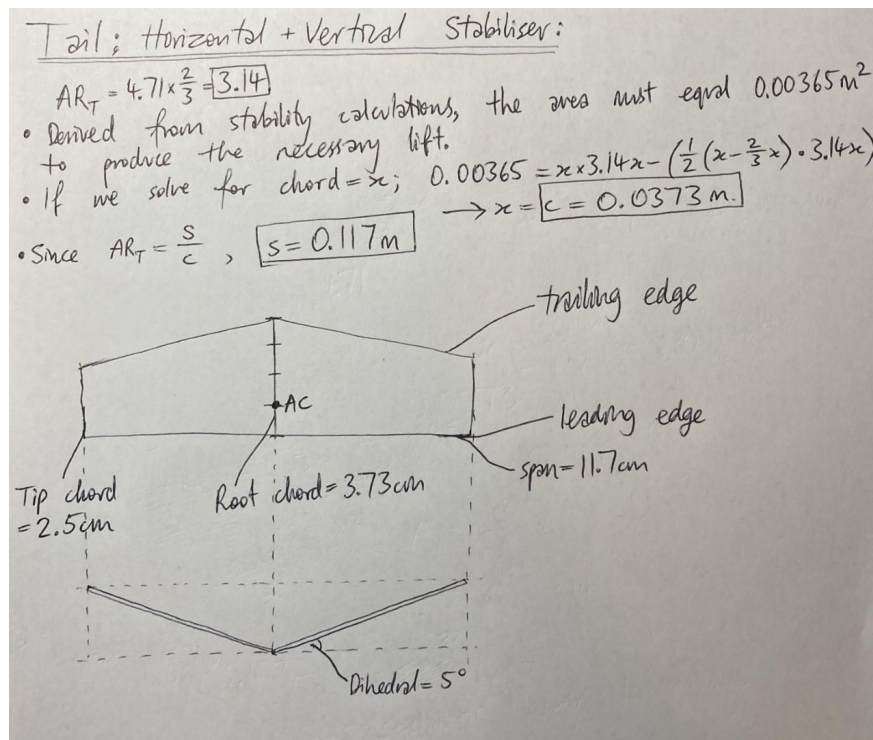 Tail: Horizontal + Vertical Stabiliser:
AR_T = 4.71 × 2/3 = 3.14
• Derived from stability calculations, the area must equal 0.00365 m²
to produce the necessary lift.
• If we solve for chord = x; 0.00365 = x × 3.14x − (1/2 (x − 2/3 x) · 3.14x)
→ x = c = 0.0373 m.
• Since AR_T = s/c , s = 0.117m
trailing edge
AC
leading edge
span = 11.7cm
Root chord = 3.73cm
Tip chord
= 2.5cm
Dihedral = 5°